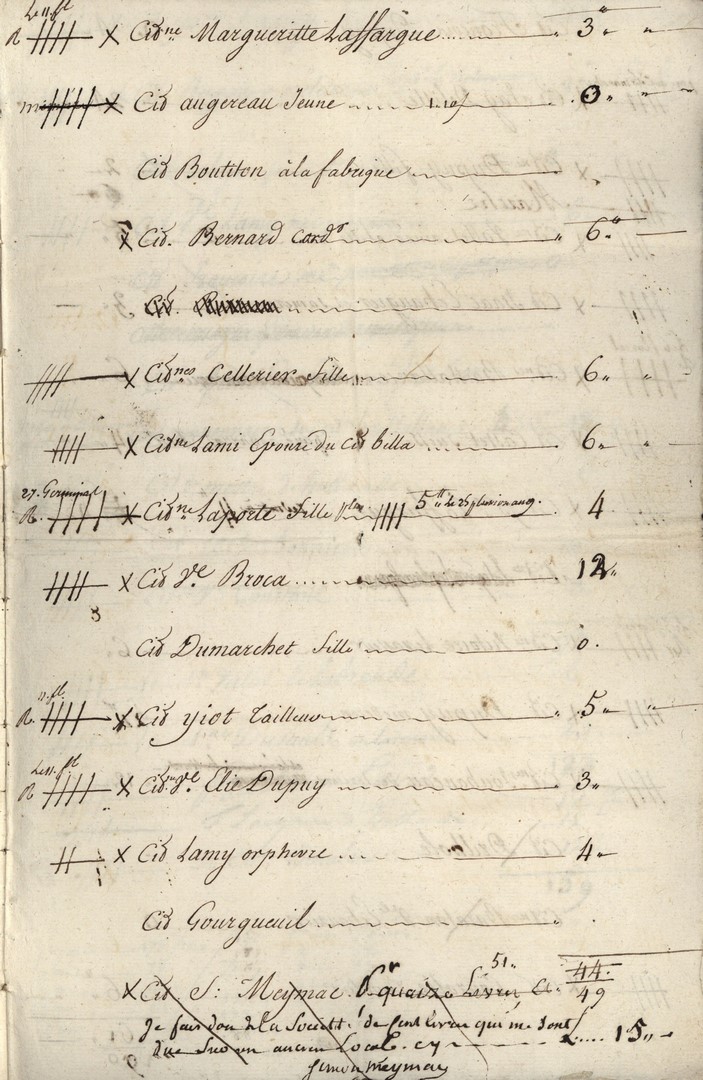 Le 11. fl
R × Cidne Margueritte Laffargue 3 "
× Cid augereau Jeune 1.10 0 "
Cid Boutiton à la fabrique
× Cid. Bernard Cardr 6 "
Cid.
× Cidnes Cellerier fille 6 "
× Cidne Lami Epouse du cid billa 6 "
27. Germinal
R. × Cidne Laporte fille 5tt le 4
× Cid Ve Broca 12 "
3
Cid Dumarchet fille 0.
11. fl.
R. × Cid yiot Tailleur 5 "
Le 11. fl
R × Cidne Ve Elie Dupuy 3 "
× Cid Lamy orphevre 4 "
Cid Gourgueuil
51 " 44.
× Cid S: Meymac Pr quaize Livres Ci 49
Je fais don à la Société de Cent livres qui me sont
due sur un ancien Local. cy 15 "
Simon Meymac